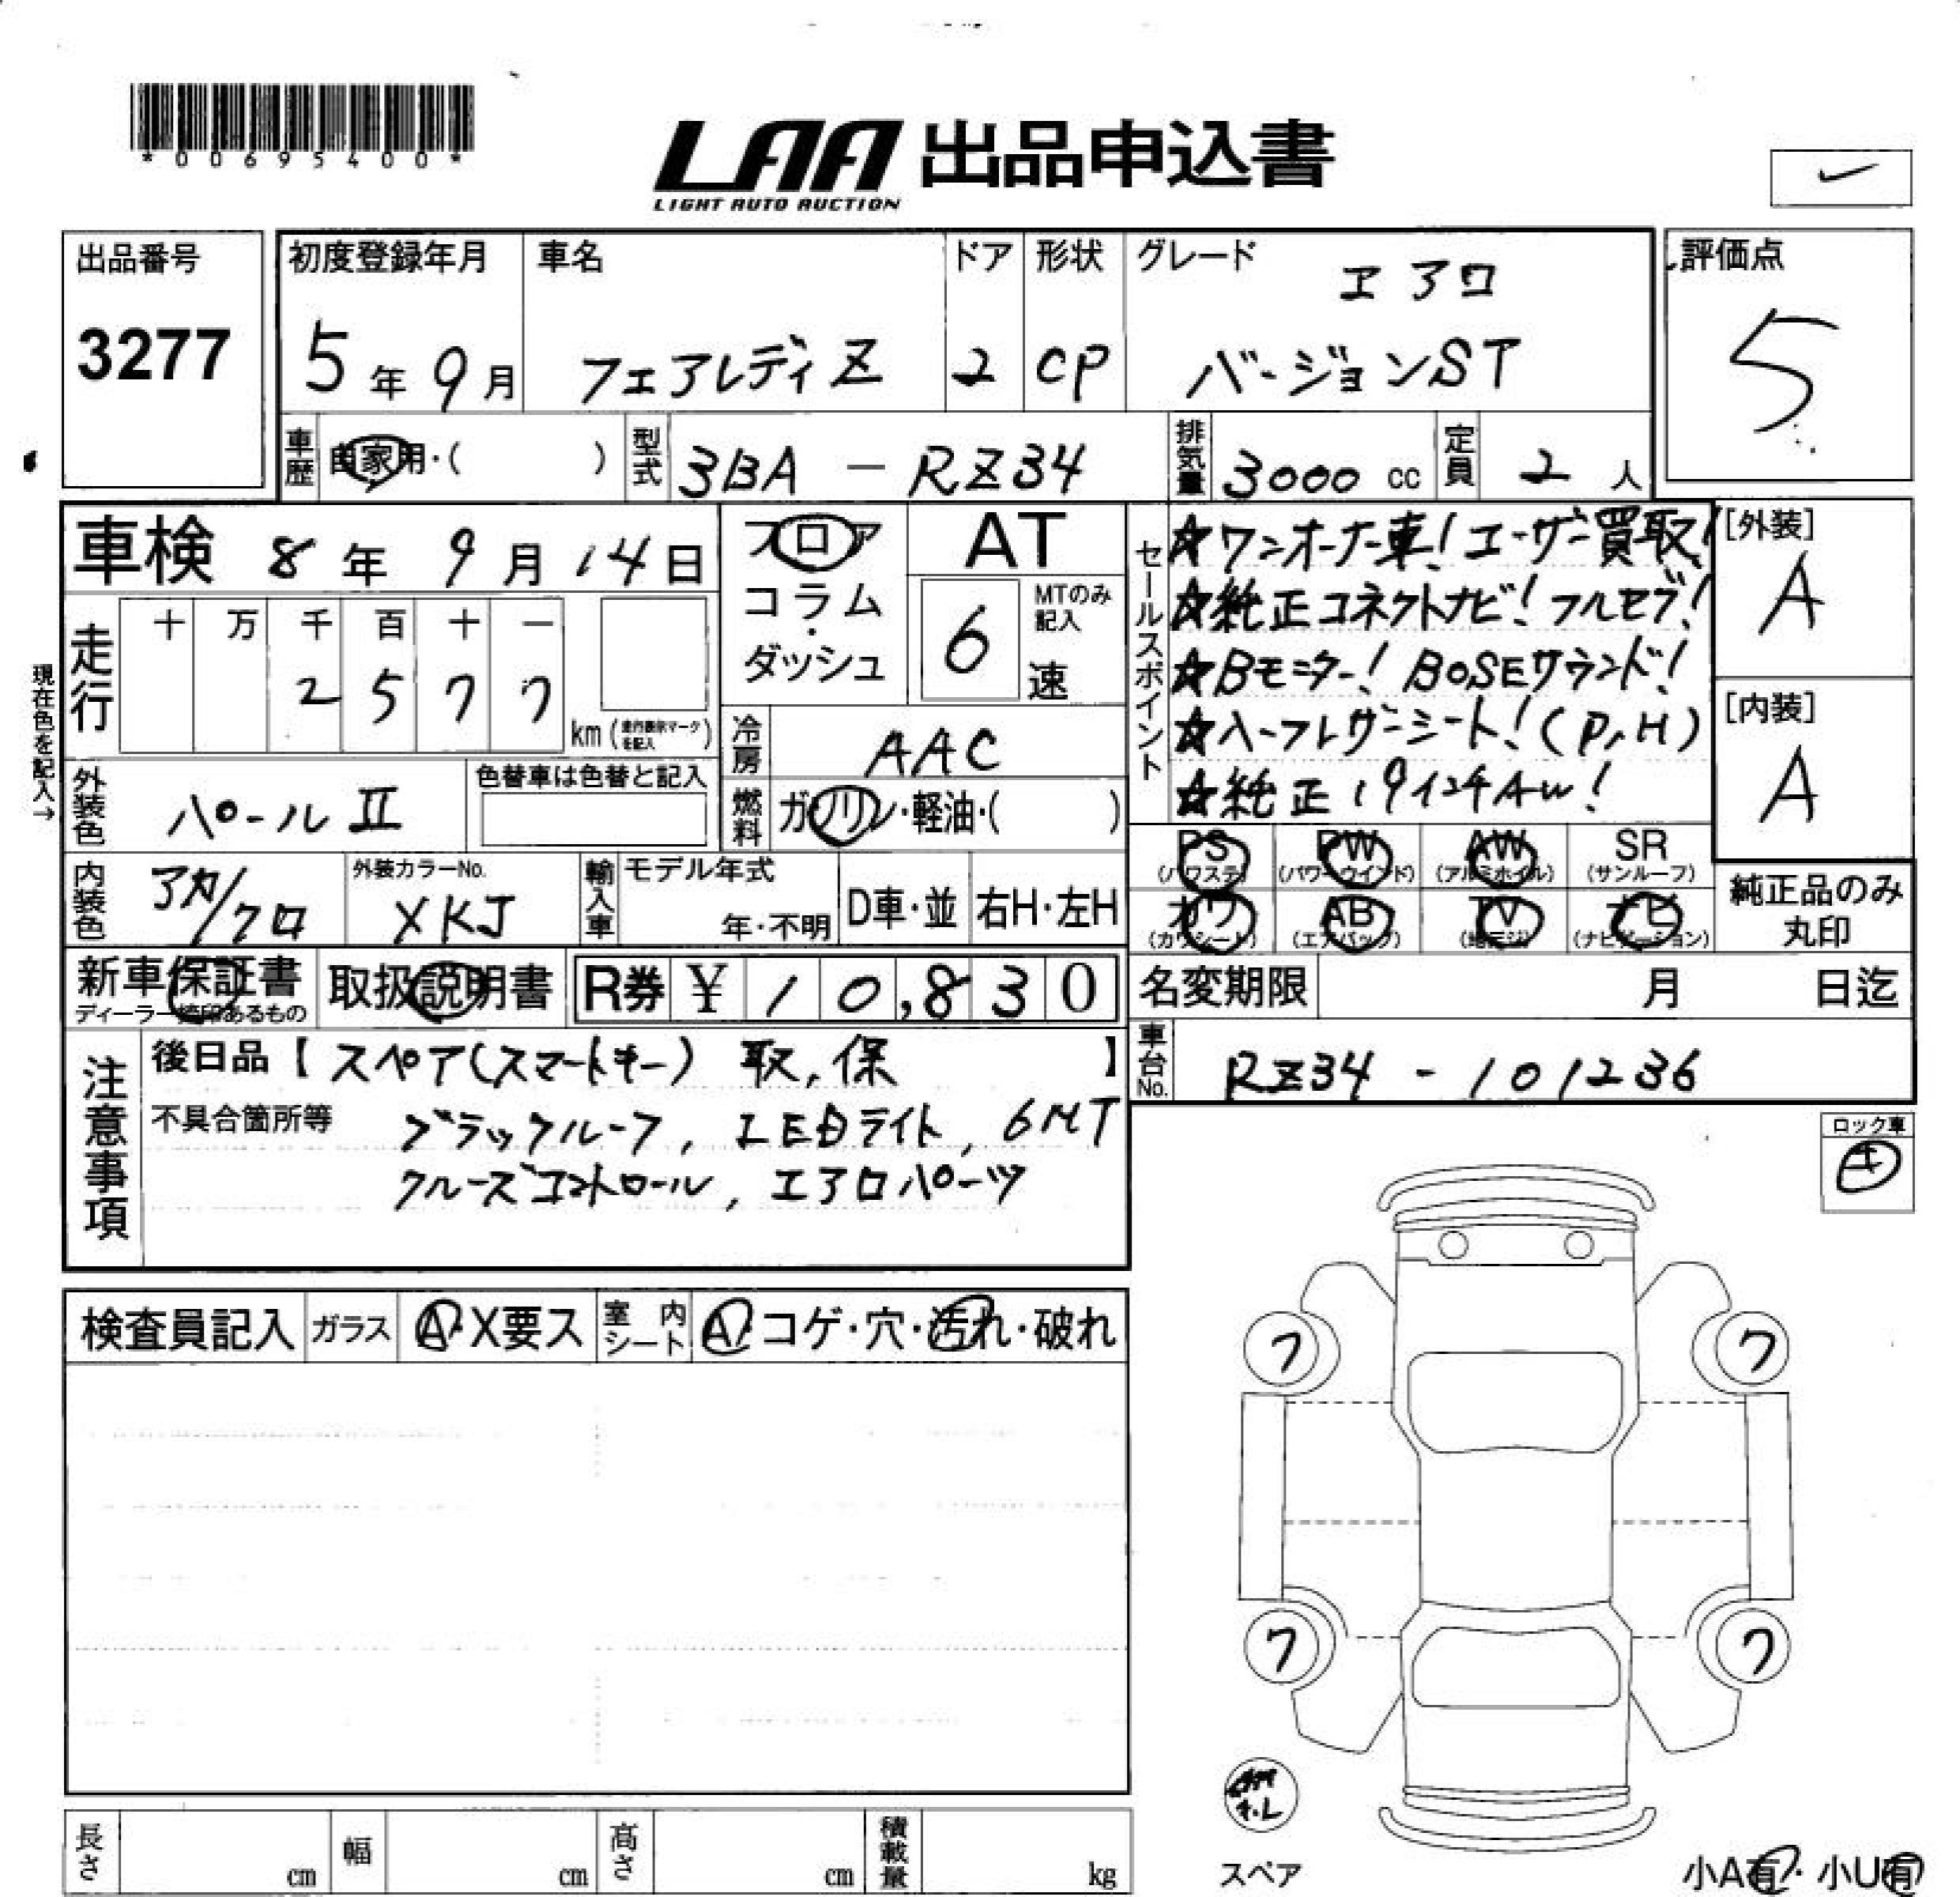 *00695400*
LAA 出品申込書
LIGHT AUTO AUCTION
出品番号
3277
初度登録年月
5年9月
車名
フェアレディZ
ドア
2
形状
CP
グレード
エアロ
バージョンST
評価点
5
車歴 自家用・( )
型式 3BA-RZ34
排気量 3000cc
定員 2人
車検 8年9月14日
フロア
コラム
・
ダッシュ
AT
6
MTのみ記入
速
現在色を記入→
走行
十 万 千 百 十 一
2 5 7 7
km(走行表示マークを記入)
冷房 AAC
燃料 ガソリン・軽油・( )
外装色 パールⅡ
色替車は色替と記入
内装色 アカ/クロ
外装カラーNo.
XKJ
輸入車
モデル年式
年・不明
D車・並
右H・左H
セールスポイント
☆ワンオーナー車!ユーザー買取!
☆純正コネクトナビ!フルセグ!
☆Bモニター!BOSEサウンド!
☆ハーフレザーシート!(P,H)
☆純正19インチAW!
[外装]
A
[内装]
A
PS
(パワステ)
PW
(パワーウインド)
AW
(アルミホイル)
SR
(サンルーフ)
カワ
(カワシート)
AB
(エアバッグ)
TV
(地デジ)
ナビ
(ナビゲーション)
純正品のみ
丸印
新車保証書
ディーラー捺印あるもの
取扱説明書
R券 ¥ 10,830
名変期限 月 日迄
車台No. RZ34-101236
注意事項
後日品【スペア(スマートキー) 取,保】
不具合箇所等
ブラックルーフ, LEDライト, 6MT
クルーズコントロール, エアロパーツ
ロック車
キ
検査員記入
ガラス A・X要ス
室内シート A・コゲ・穴・汚れ・破れ
7
7
7
7
スペア
小A有・小U有
長さ cm
幅 cm
高さ cm
積載量 kg